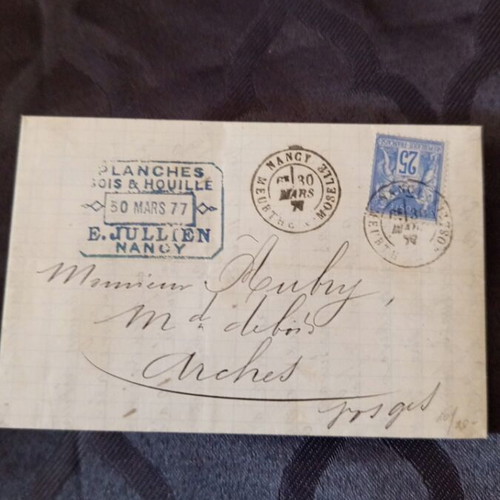 PLANCHES
BOIS & HOUILLE
30 MARS 77
E. JULLIEN
NANCY
NANCY
30
MARS
77
MEURTHE ET MOSELLE
25
NANCY
Monsieur Aubry,
Md de bois
Arches
Vosges